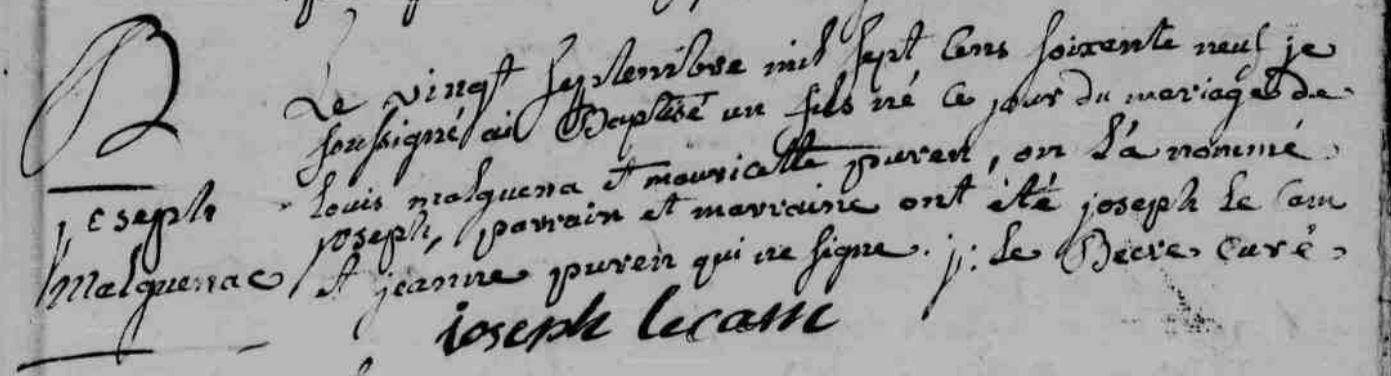 B
joseph
malquenac
Le vingt septembre mil sept cens soixante neuf je
soussigné ai Baptisé un fils né ce jour du mariage de
Louis malquena et mauricette puren, on l'a nommé
joseph, parrain et marraine ont été joseph le cam
et jeanne puren qui ne signe. j: le Becre curé
joseph lecam